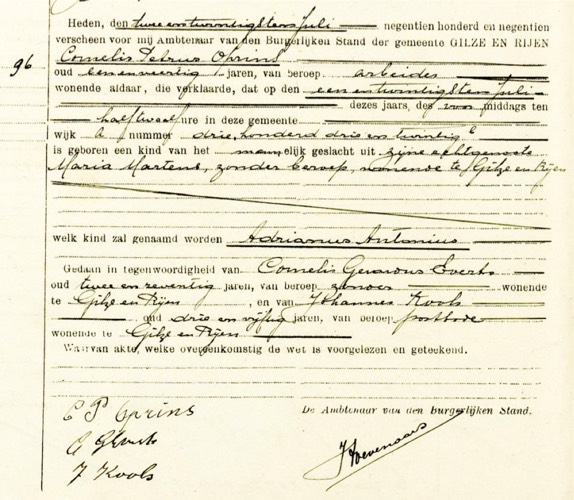 Heden, den twee en twintigsten Juli negentien honderd en negentien
verscheen voor mij Ambtenaar van den Burgerlijken Stand der gemeente GILZE EN RIJEN
96
Cornelis Petrus Oprins
oud een en veertig jaren, van beroep arbeider
wonende aldaar, die verklaarde, dat op den een en twintigsten Juli
dezes jaars, des voor middags ten
half twaalf ure in deze gemeente
wijk A nummer drie honderd drie en twintig
is geboren een kind van het mannelijk geslacht uit zijne echtgenoote
Maria Martens, zonder beroep, wonende te Gilze en Rijen
welk kind zal genaamd worden Adrianus Antonius
Gedaan in tegenwoordigheid van Cornelis Gerardus Everts
oud twee en zeventig jaren, van beroep zonder wonende
te Gilze en Rijen, en van Johannes Kools
oud drie en vijftig jaren, van beroep postbode
wonende te Gilze en Rijen
Waarvan akte, welke overeenkomstig de wet is voorgelezen en geteekend.
De Ambtenaar van den Burgerlijken Stand.
C P Oprins
J Hoevenaars
C G Everts
J Kools